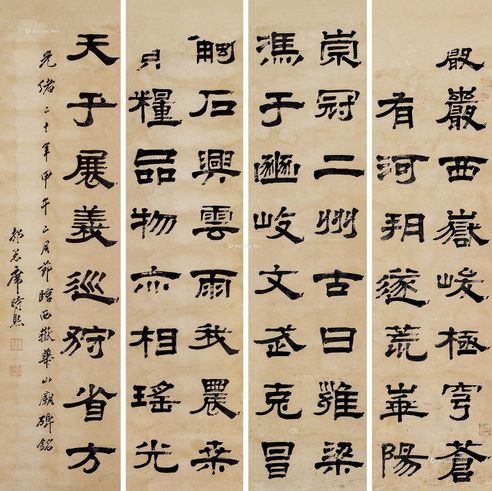 嚴巖西嶽峻極穹蒼
有河朔遂荒崋陽
崇冠二州古曰雍梁
馮于豳岐文武克昌
觸石興雲雨我農桑
糧品物亦相瑤光
天子展義巡狩省方
光緒二十年甲午二月節臨西嶽華山廟碑銘